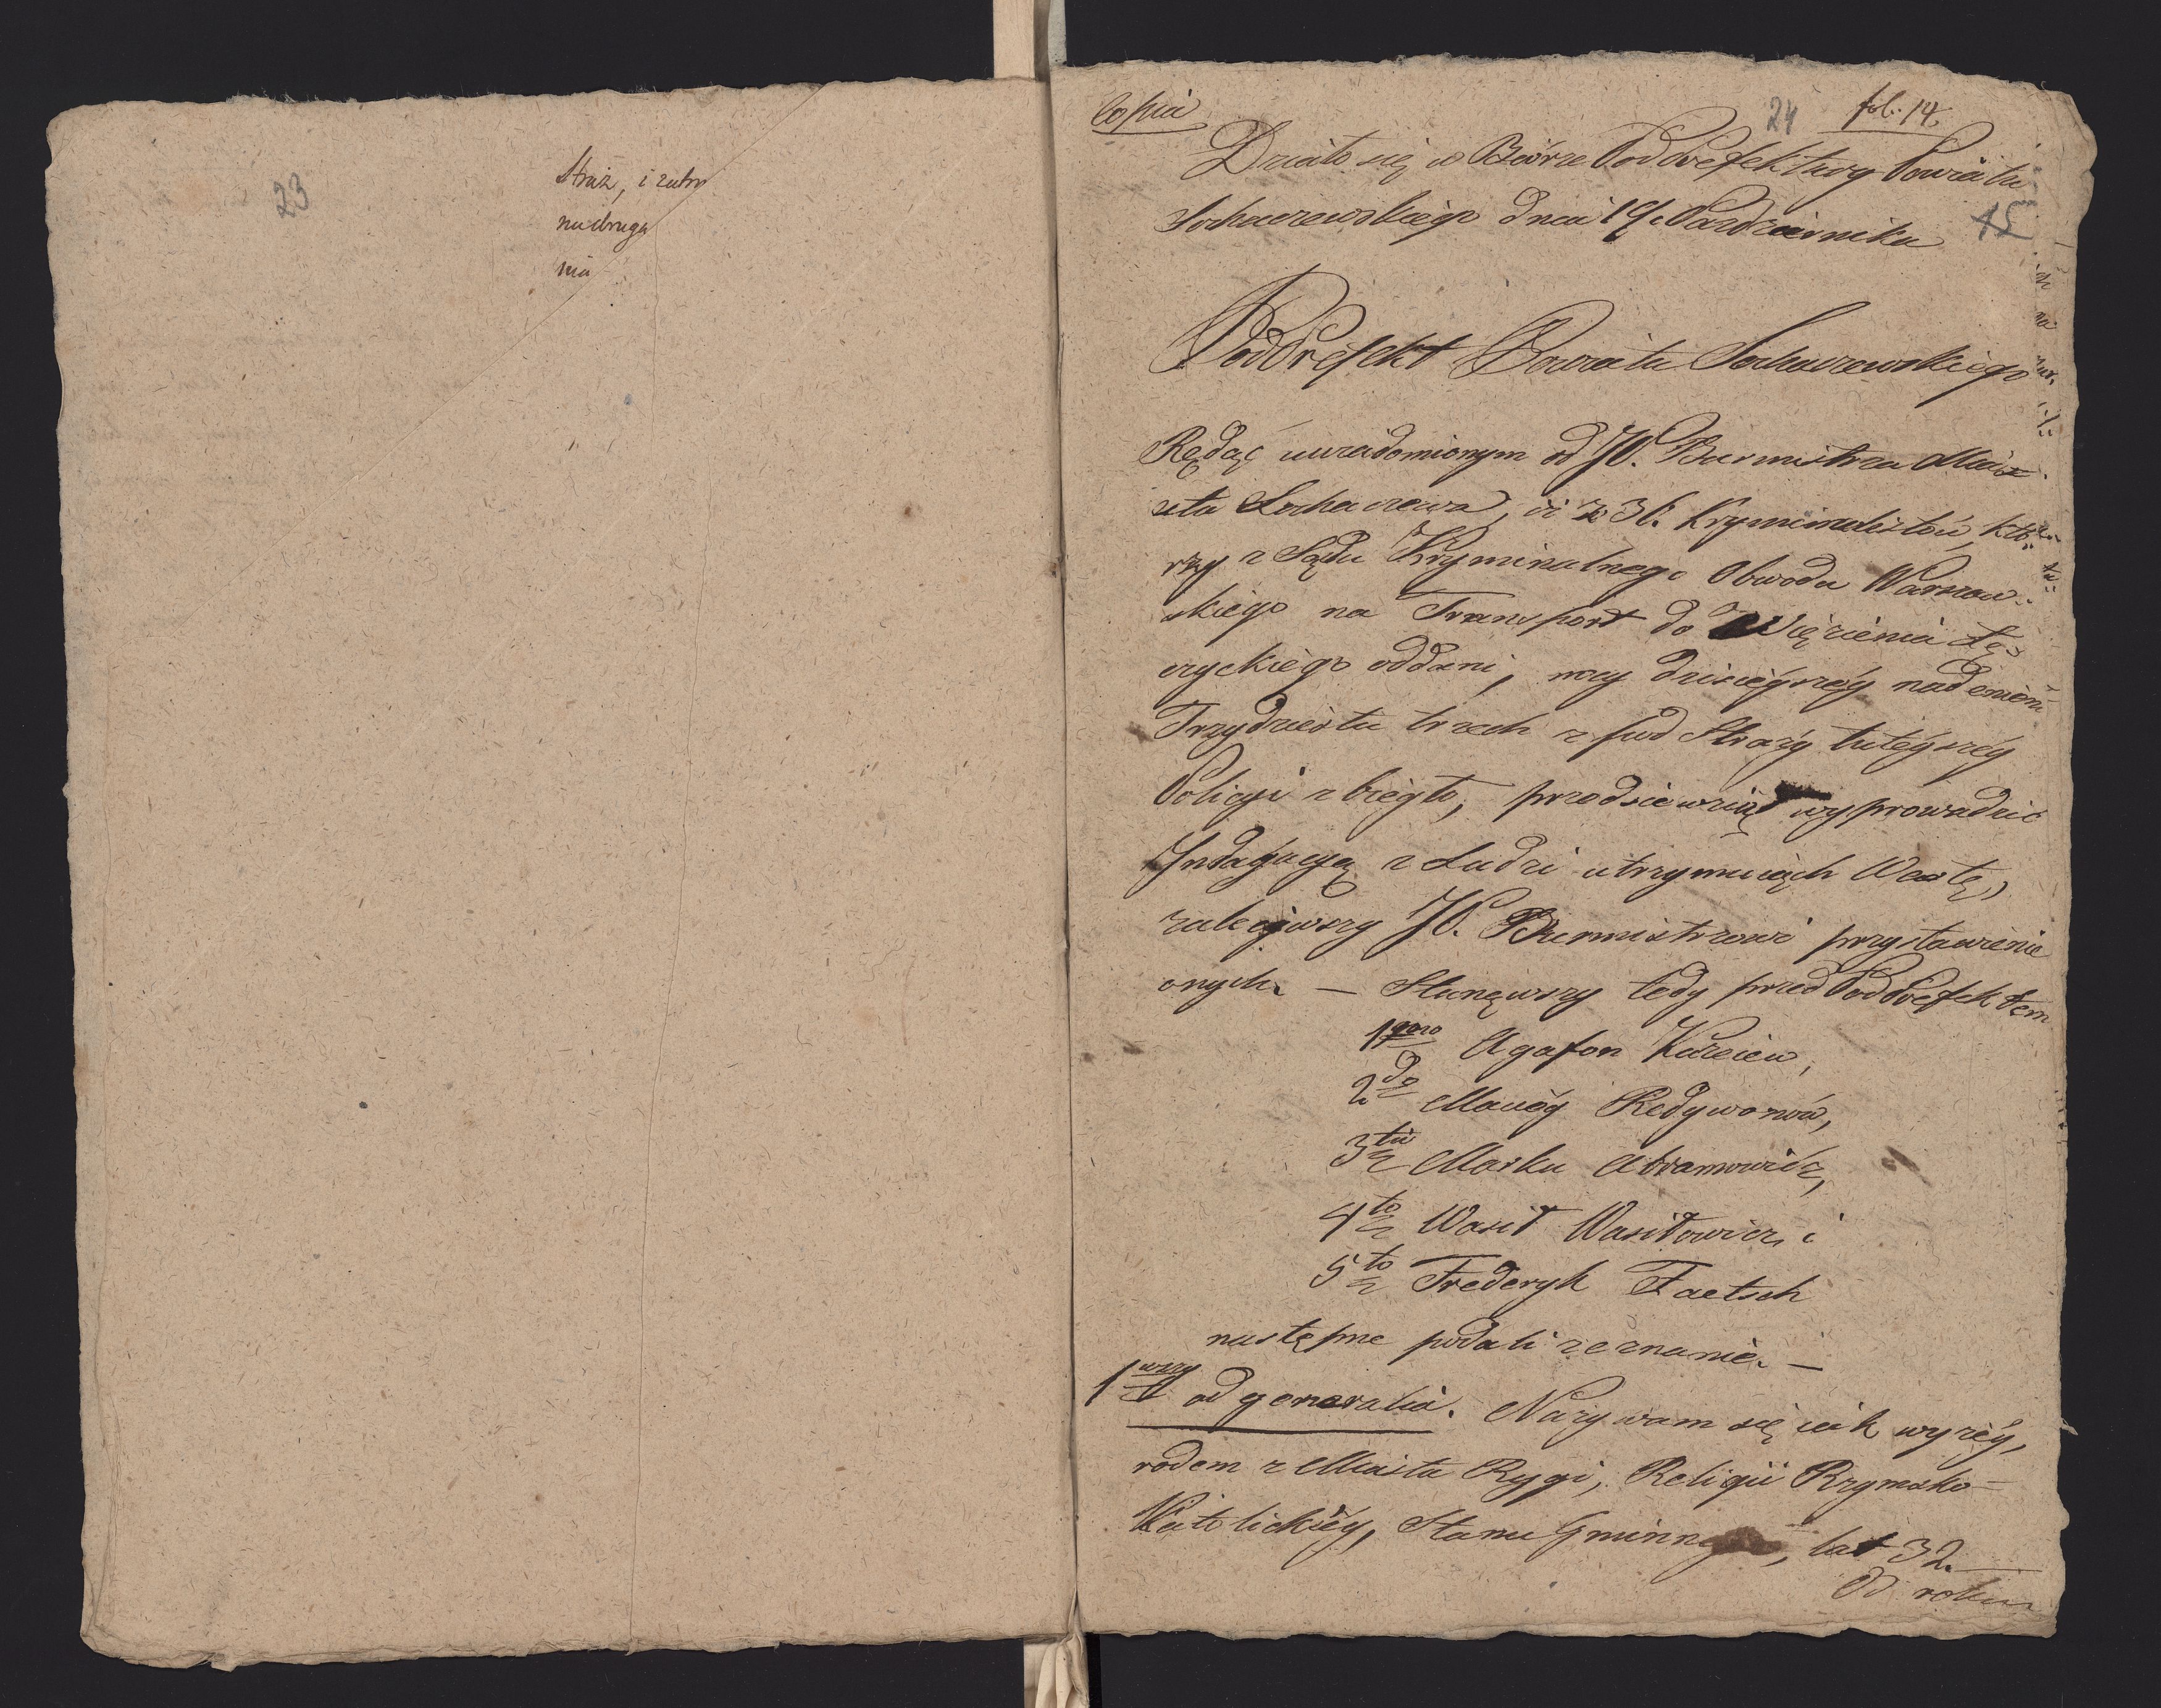 23
Straż, i zabra
na druga
nia
Copia
24 fol. 14.
Działo się w Biórze PodPrefektury Powiatu
Sochaczewskiego dnia 19. Pazdziernika
15
PodPrefekt Powiatu Sochaczewskiego
Będąc uwiadomionym od JP. Burmistrza Mia-
sta Sochaczewa, iż z 36. Kryminalistów, któ-
rzy z Sądu Kryminalnego Obwodu Warszaw-
skiego na Transport do Więzienia Łę-
czyckiego oddani, nocy dzisieyszéy nadeniem
Trzydziestu trzech z pod Straży tuteyszéy
Policyi zbiegło, przedsiewziął wyprowadzić
Indagacyą z Ludzi utrzymuiących Wartę,
zaleciwszy JP. Burmistrzowi przystawienie
onych. — Stanąwszy tedy przed PodPrefektem
1mo Agafon Kareiew,
2do Maciéy Redyworów,
3tia Marku Abramowicz,
4to Wasił Wasiłowicz, i
5to Frederyk Faetsch
następne podali zeznanie. —
1wszy ad generalia. Nazywam się iak wyżéy,
rodem z Miasta Rygi, Religii Rzymsko-
Katolickiéy, Stanu Gminnego, lat 32.
Od roku